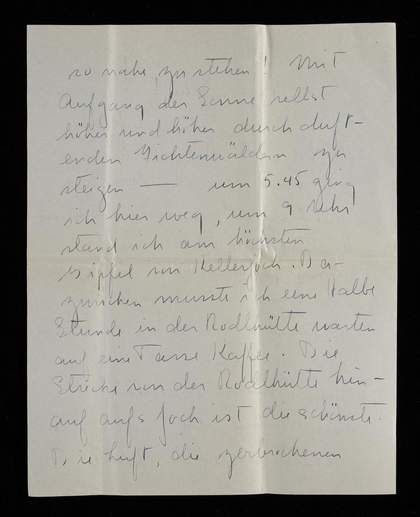 so nahe zu stehen! Mit
Aufgang der Sonne selbst
höher und höher durch duft-
enden Fichtenwäldern zu
steigen — um 5.45 ging
ich hier weg, um 9 Uhr
stand ich am höchsten
Gipfel von Kellerjoch. Da-
zwischen musste ich eine Halbe
Stunde in der Rodlhütte warten
auf eine Tasse Kaffee. Die
Strecke von der Rodlhütte hin-
auf aufs Joch ist die schönste.
Die Luft, die zerbrochenen